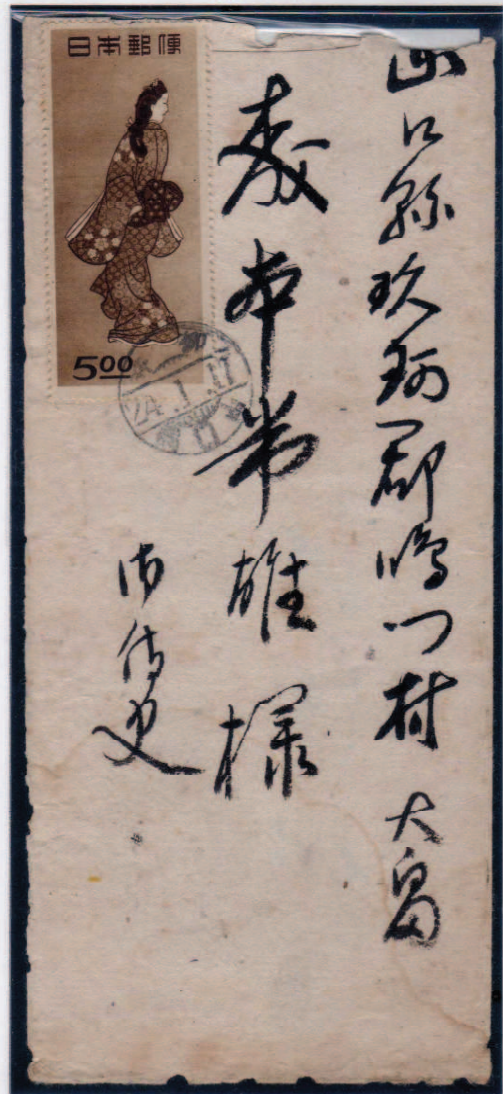 山口縣玖珂郡鳴門村 大畠
本 雄 様
御侍史
日本郵便
500
24.1.17